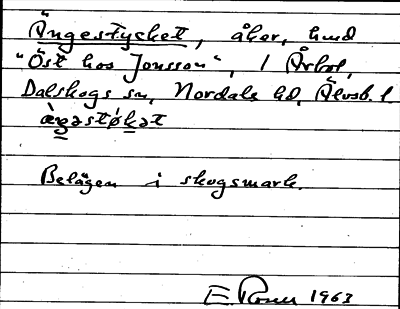 Ängestycket, åker, hmd
"Öst hos Jonsson", 1 Årbol,
Dalskogs sn, Nordals hd, Älvsb. l.
Belägen i skogsmark.
E. Rosen 1963